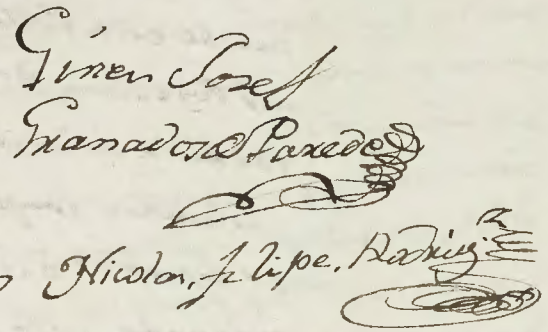 Ginen Josef
Granados Paredes
Nicolas, felipe, Rodrigz